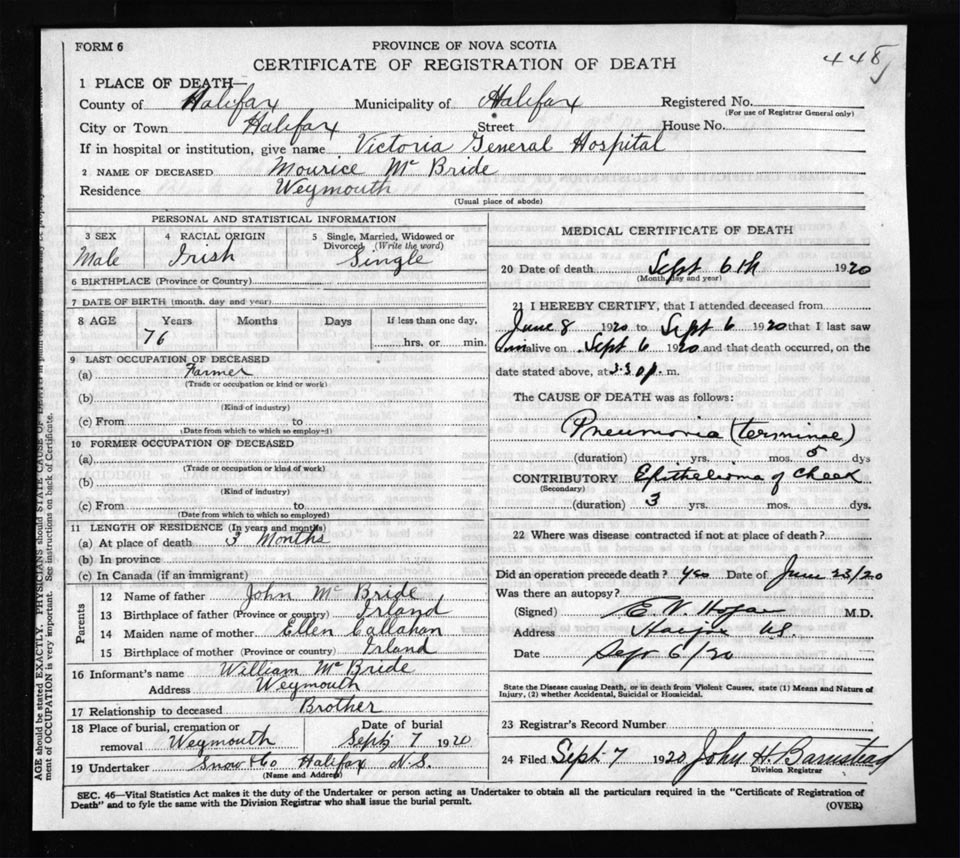 FORM 6
PROVINCE OF NOVA SCOTIA
CERTIFICATE OF REGISTRATION OF DEATH
448
1 PLACE OF DEATH—
County of Halifax Municipality of Halifax Registered No.
(For use of Registrar General only)
City or Town Halifax Street House No.
If in hospital or institution, give name Victoria General Hospital
2 NAME OF DECEASED Mourice Mc Bride
Residence Weymouth
(Usual place of abode)
PERSONAL AND STATISTICAL INFORMATION
3 SEX 4 RACIAL ORIGIN 5 Single, Married, Widowed or Divorced (Write the word)
Male Irish Single
6 BIRTHPLACE (Province or Country)
7 DATE OF BIRTH (month, day and year)
8 AGE Years Months Days If less than one day,
76 hrs. or min.
9 LAST OCCUPATION OF DECEASED
(a) Farmer
(Trade or occupation or kind or work)
(b)
(Kind of industry)
(c) From to
(Date from which to which so employed)
10 FORMER OCCUPATION OF DECEASED
(a)
(Trade or occupation or kind or work)
(b)
(Kind of industry)
(c) From to
(Date from which to which so employed)
11 LENGTH OF RESIDENCE (In years and months)
(a) At place of death 3 Months
(b) In province
(c) In Canada (if an immigrant)
Parents
12 Name of father John Mc Bride
13 Birthplace of father (Province or country) Irland
14 Maiden name of mother Ellen Callahan
15 Birthplace of mother (Province or country) Irland
16 Informant's name William Mc Bride
Address Weymouth
17 Relationship to deceased Brother
18 Place of burial, cremation or removal Weymouth
Date of burial Sept 7 1920
19 Undertaker Snow & Co Halifax N.S.
(Name and Address)
MEDICAL CERTIFICATE OF DEATH
20 Date of death Sept 6th 1920
(Month, day and year)
21 I HEREBY CERTIFY, that I attended deceased from
June 8 1920 to Sept 6 1920 that I last saw
him alive on Sept 6 1920 and that death occurred, on the
date stated above, at 3.30 p. m.
The CAUSE OF DEATH was as follows:
Pneumonia (terminal)
(duration) yrs. mos. 5 dys
CONTRIBUTORY Epithelioma of Cheek
(Secondary)
(duration) 3 yrs. mos. dys.
22 Where was disease contracted if not at place of death?
Did an operation precede death? yes Date of June 23/20
Was there an autopsy?
(Signed) E V Hogan M.D.
Address Halifax NS.
Date Sept 6/20
State the Disease causing Death, or in death from Violent Causes, state (1) Means and Nature of
Injury, (2) whether Accidental, Suicidal or Homicidal.
23 Registrar's Record Number
24 Filed Sept 7 1920 John H. Barnstead
Division Registrar
SEC. 46—Vital Statistics Act makes it the duty of the Undertaker or person acting as Undertaker to obtain all the particulars required in the "Certificate of Registration of
Death" and to fyle the same with the Division Registrar who shall issue the burial permit.
(OVER)
AGE should be stated EXACTLY. PHYSICIANS should STATE CAUSE OF DEATH
ment of OCCUPATION is very important. See instructions on back of Certificate.